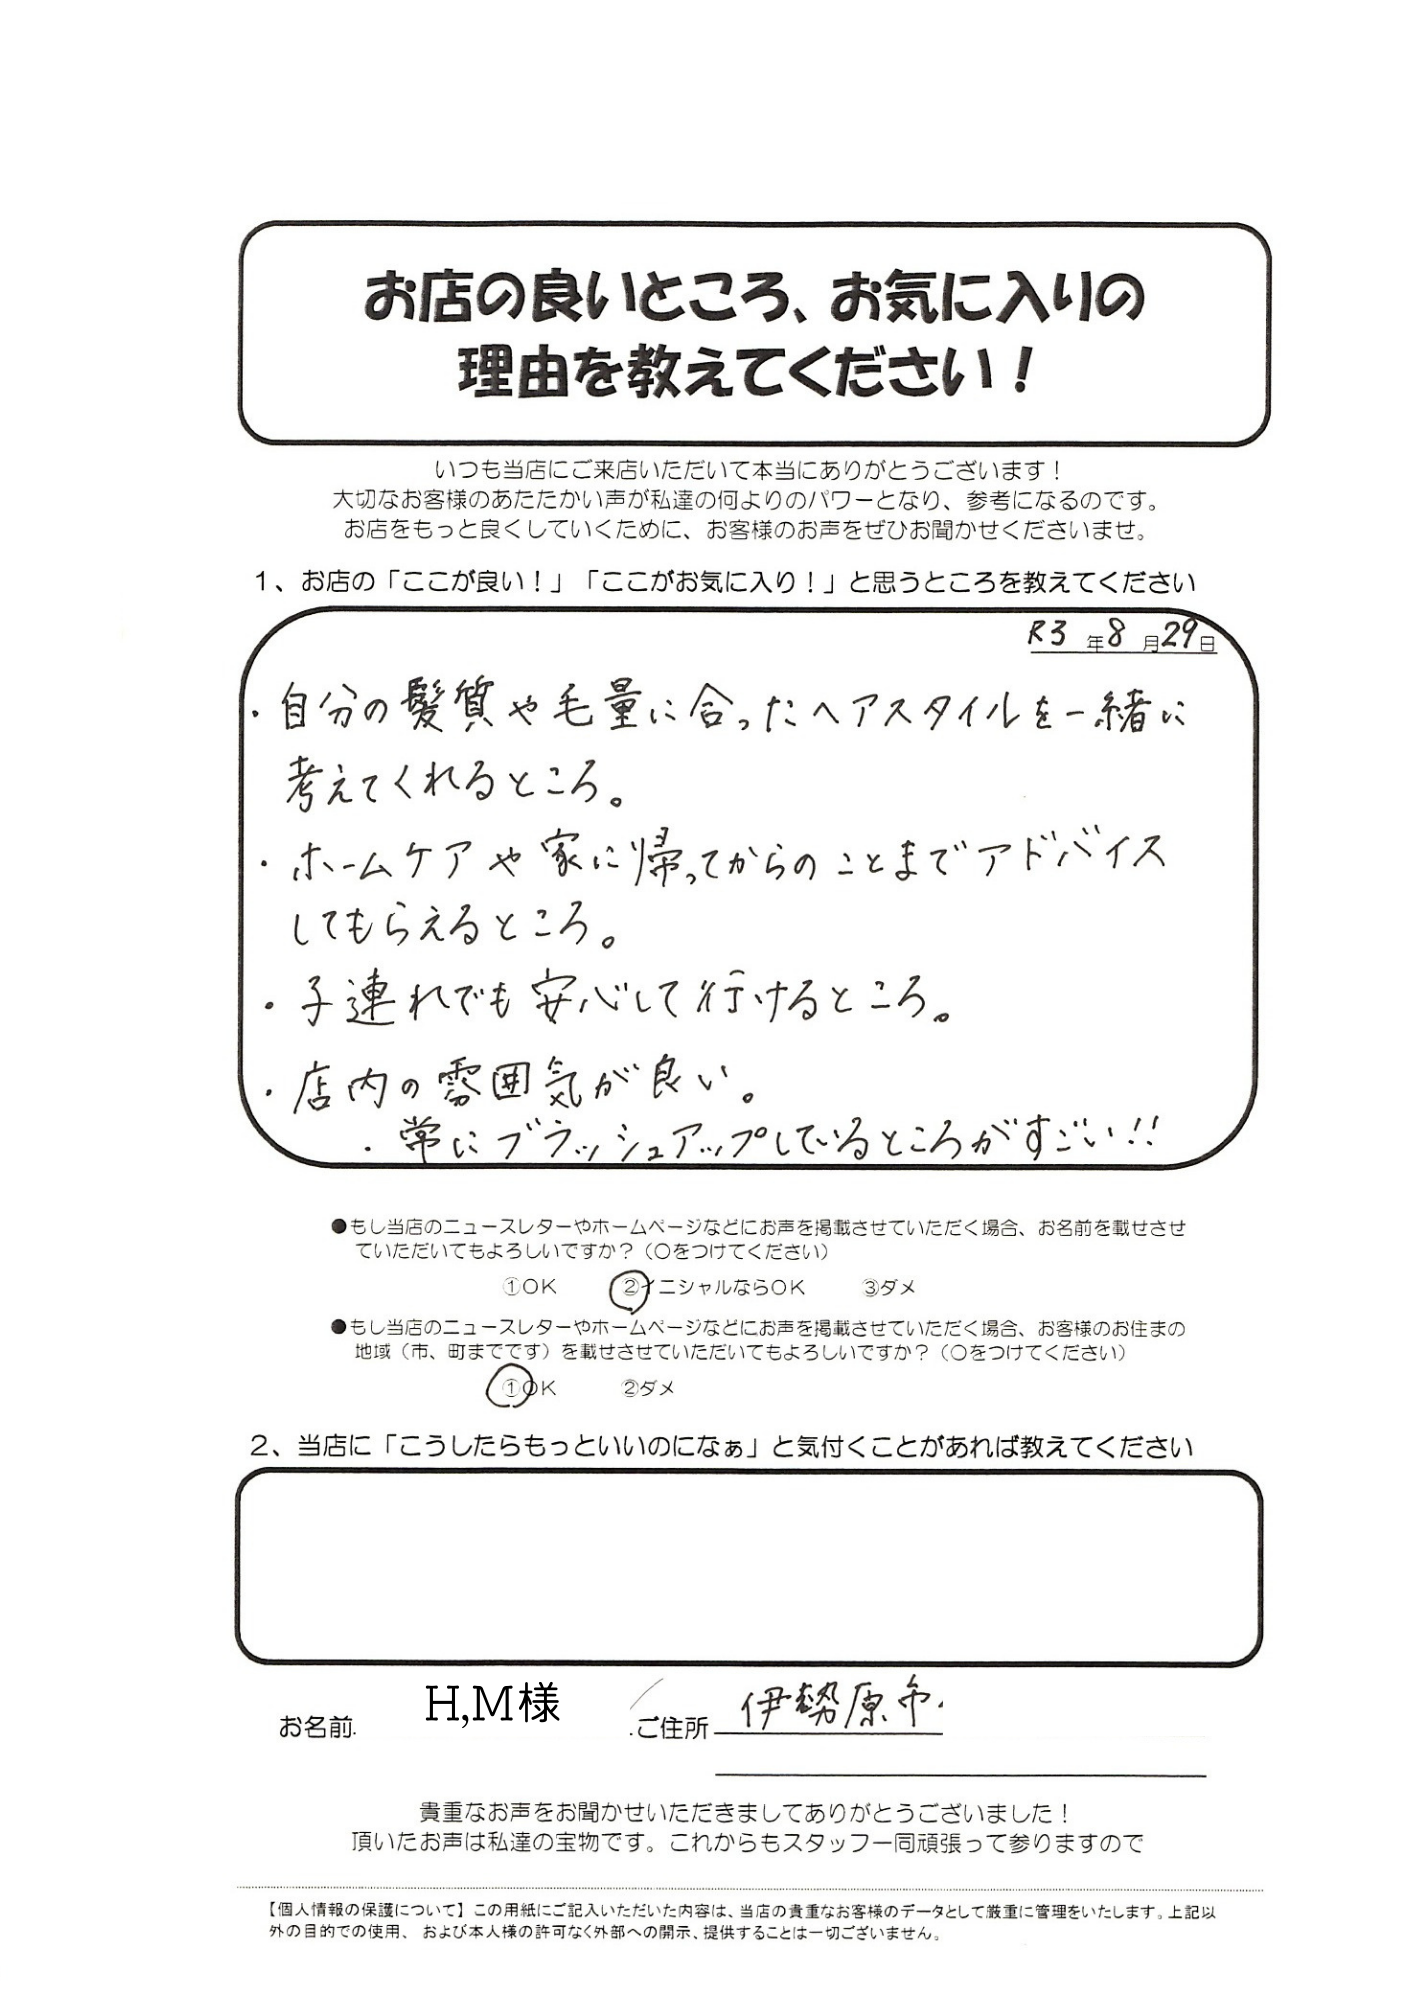 お店の良いところ、お気に入りの
理由を教えてください!
いつも当店にご来店いただいて本当にありがとうございます!
大切なお客様のあたたかい声が私達の何よりのパワーとなり、参考になるのです。
お店をもっと良くしていくために、お客様のお声をぜひお聞かせくださいませ。
1、お店の「ここが良い!」「ここがお気に入り!」と思うところを教えてください
R3年8月29日
・自分の髪質や毛量に合ったヘアスタイルを一緒に
考えてくれるところ。
・ホームケアや家に帰ってからのことまでアドバイス
してもらえるところ。
・子連れでも安心して行けるところ。
・店内の雰囲気が良い。
・常にブラッシュアップしているところがすごい!!
●もし当店のニュースレターやホームページなどにお声を掲載させていただく場合、お名前を載せさせ
ていただいてもよろしいですか?(○をつけてください)
①OK ②イニシャルならOK ③ダメ
●もし当店のニュースレターやホームページなどにお声を掲載させていただく場合、お客様のお住まの
地域(市、町までです)を載せさせていただいてもよろしいですか?(○をつけてください)
①OK ②ダメ
2、当店に「こうしたらもっといいのになぁ」と気付くことがあれば教えてください
お名前 H,M様 ご住所 伊勢原市
貴重なお声をお聞かせいただきましてありがとうございました!
頂いたお声は私達の宝物です。これからもスタッフ一同頑張って参りますので
【個人情報の保護について】この用紙にご記入いただいた内容は、当店の貴重なお客様のデータとして厳重に管理をいたします。上記以
外の目的での使用、および本人様の許可なく外部への開示、提供することは一切ございません。